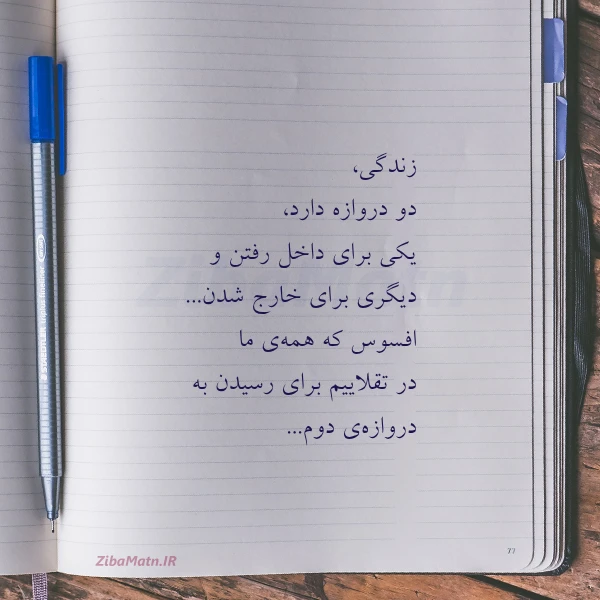 زندگی،
دو دروازه دارد،
یکی برای داخل رفتن و
دیگری برای خارج شدن...
افسوس که همه‌ی ما
در تقلاییم برای رسیدن به
دروازه‌ی دوم...
ZibaMatn
77
ZibaMatn.IR